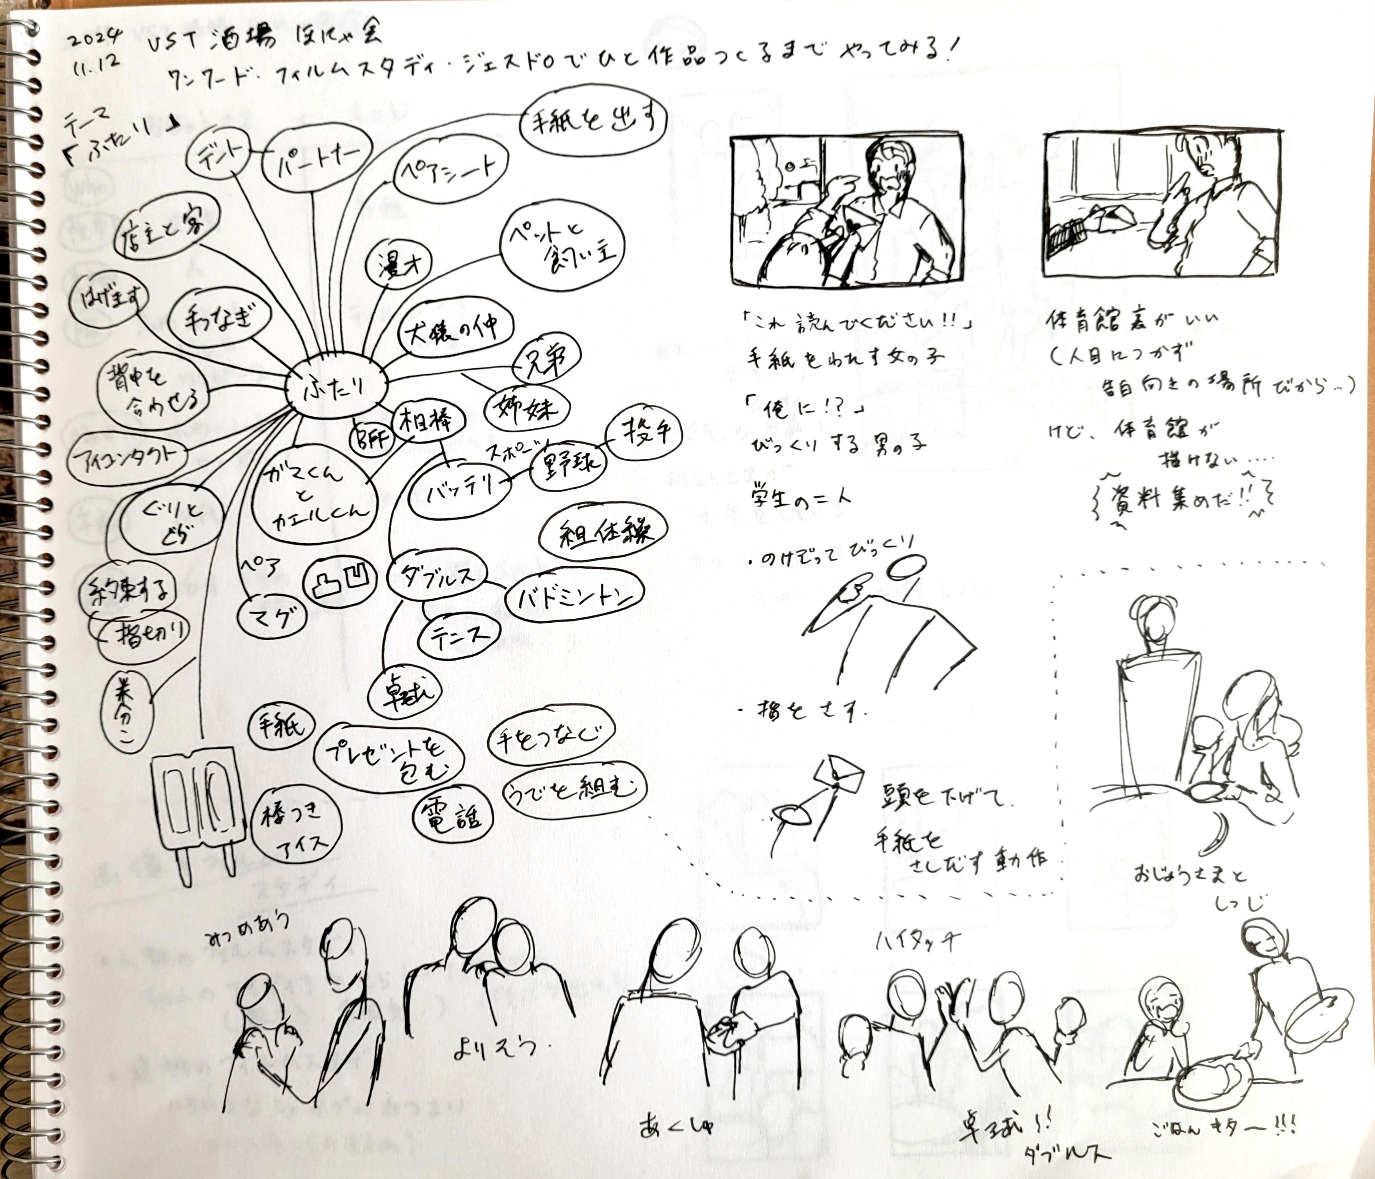 2024
11.12
VST 酒場 ほにゃ会
ワンワード・フィルムスタディ・ジェスドロでひと作品つくるまでやってみる!
テーマ
「ふたり」
デート
パートナー
手紙を出す
ペアシート
店主と客
漫才
ペットと
飼い主
はげます
手つなぎ
犬猿の仲
兄弟
姉妹
背中を
合わせる
ふたり
BFF
相棒
アイコンタクト
ガマくん
と
カエルくん
バッテリ
スポーツ
野球
投手
ぐりと
ぐら
組体操
約束する
指切り
ペア
マグ
凸凹
ダブルス
バドミントン
テニス
卓球
半分こ
手紙
プレゼントを
包む
手をつなぐ
うでを組む
棒つき
アイス
電話
「これ読んでください!!」
手紙をわたす女の子
「俺に!?」
びっくりする男の子
学生の二人
・のけぞってびっくり
・指をさす.
頭を下げて、
手紙を
さしだす動作
体育館裏がいい
(人目につかず
告白向きの場所だから…)
けど、体育館が
描けない….
資料集めだ!!
おじょうさまと
しつじ
みつめあう
よりそう.
あくしゅ
ハイタッチ
卓球!!
ダブルス
ごはんキター!!!